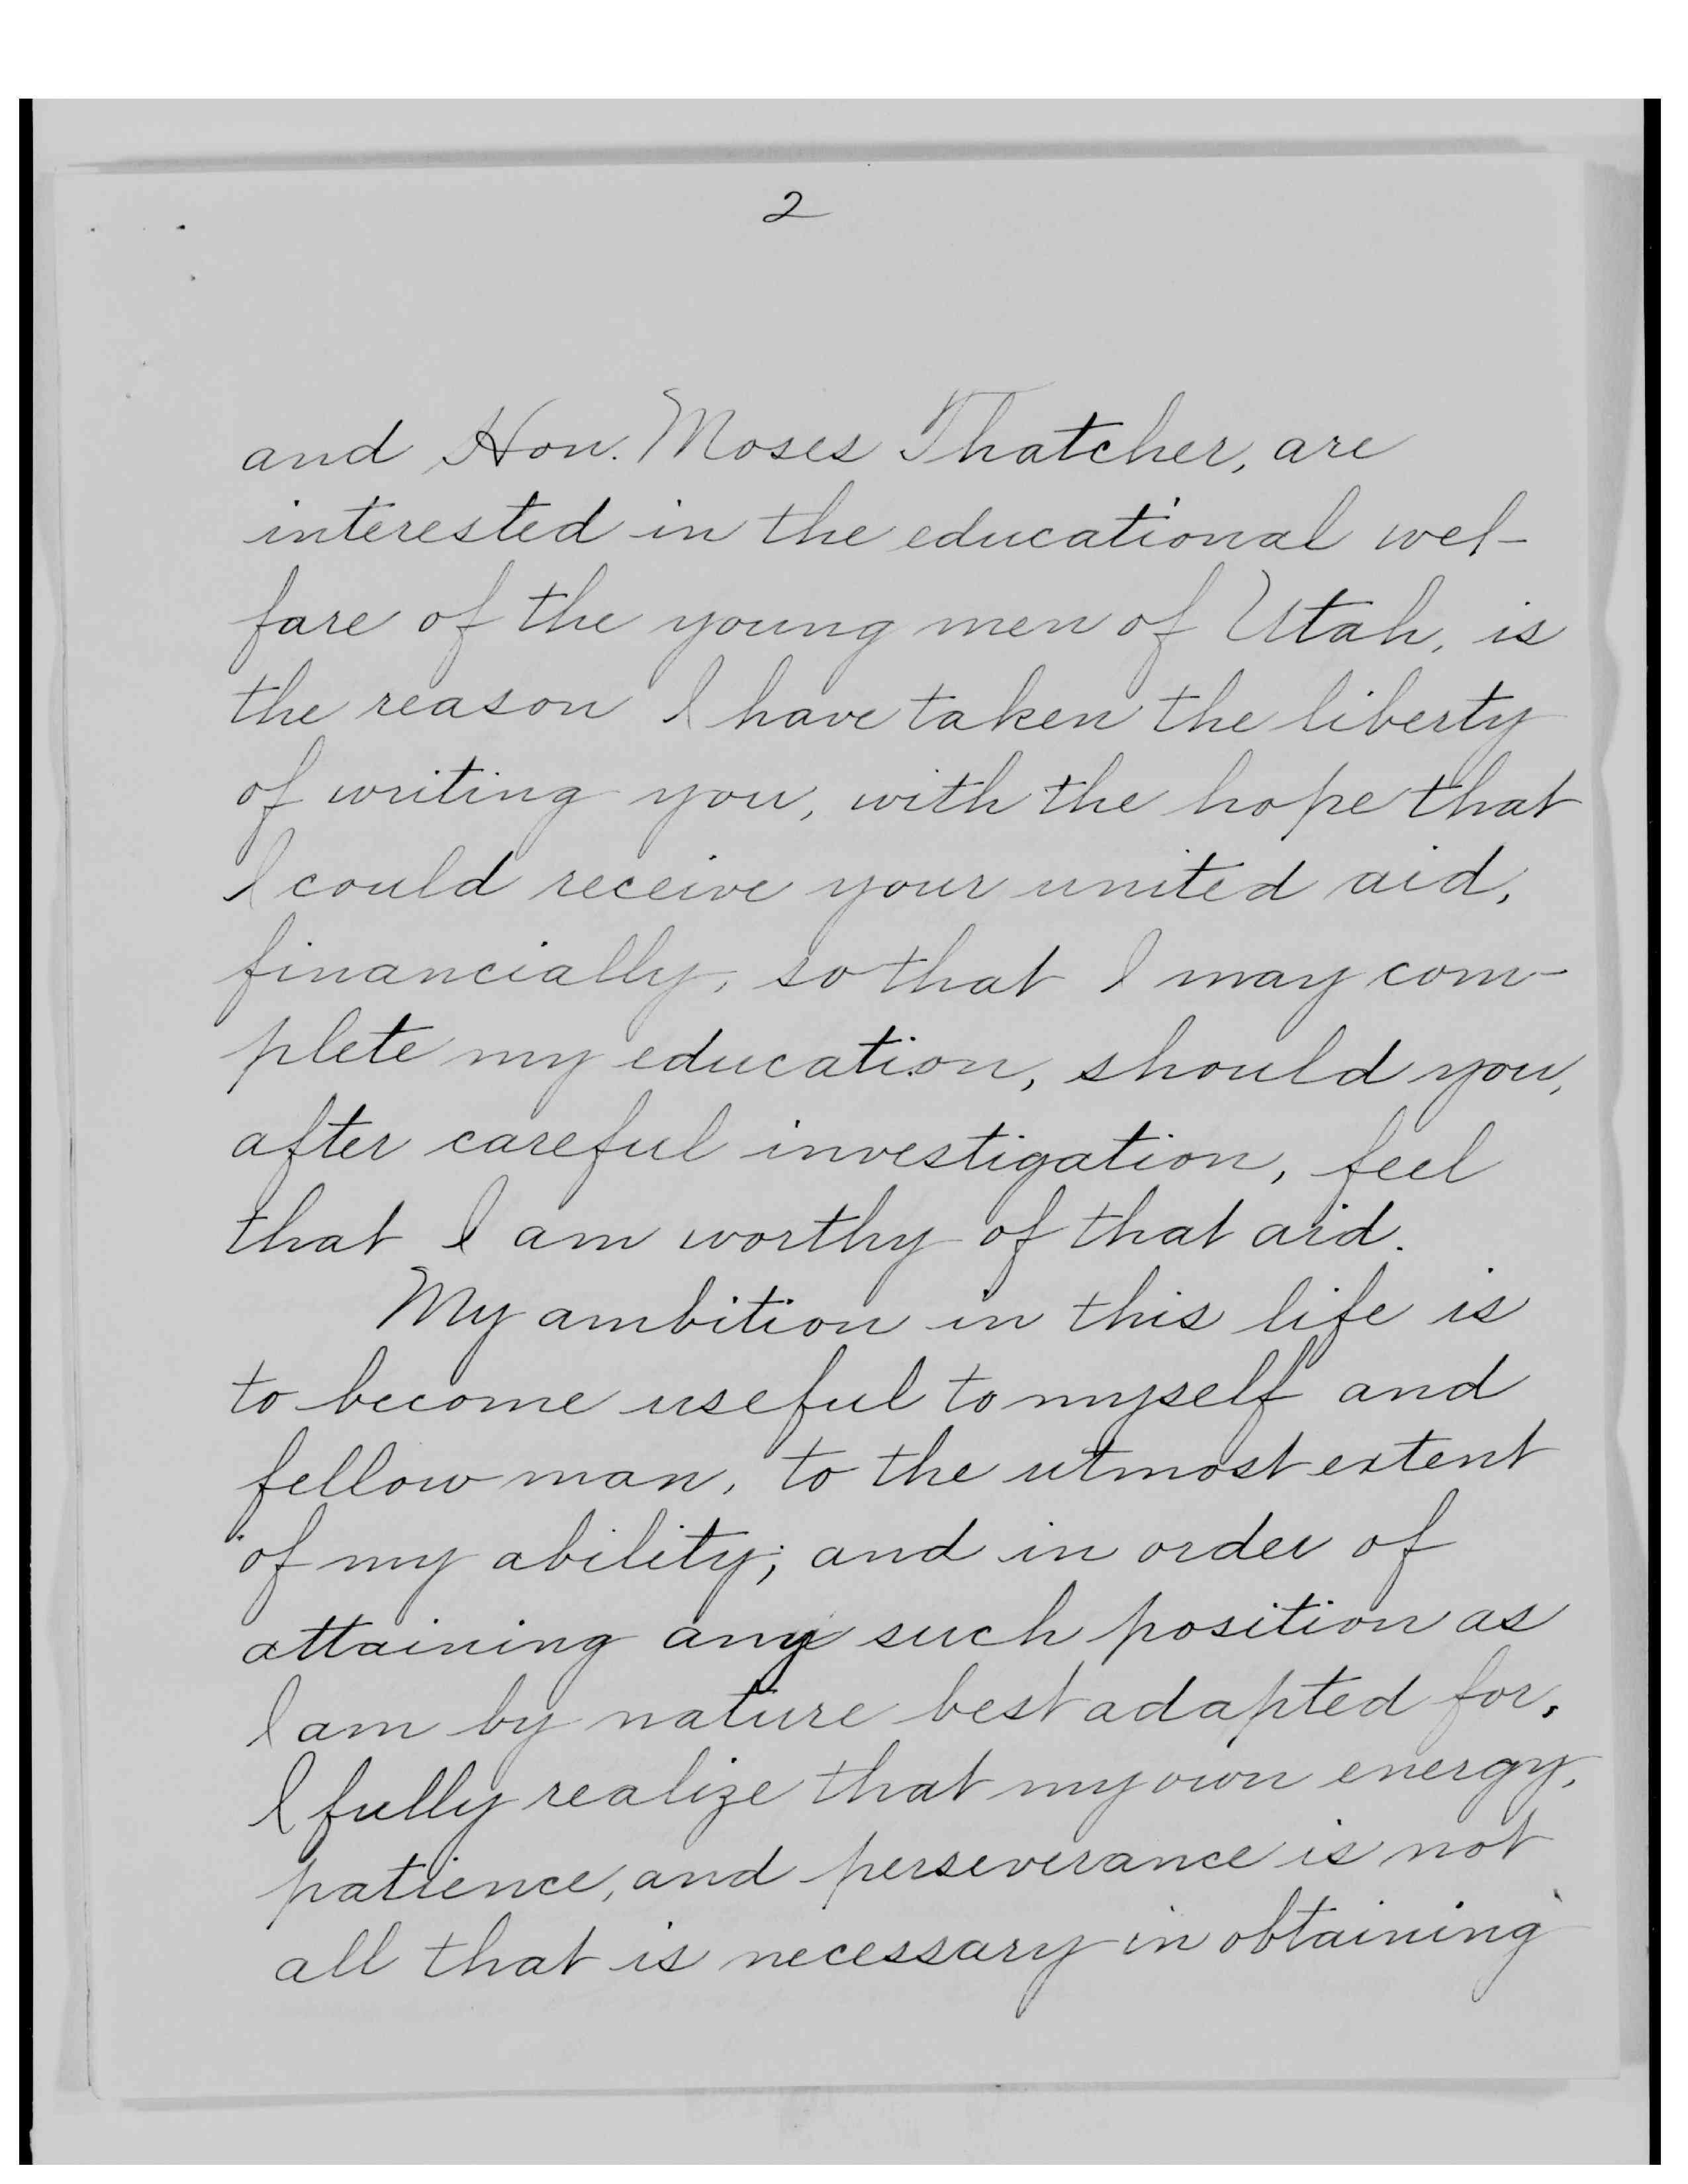 2
and Hon. Moses Thatcher, are
interested in the educational wel-
fare of the young men of Utah, is
the reason I have taken the liberty
of writing you, with the hope that
I could receive your united aid,
financially, so that I may com-
plete my education, should you,
after careful investigation, feel
that I am worthy of that aid.
My ambition in this life is
to become useful to myself and
fellow man, to the utmost extent
of my ability; and in order of
attaining any such position as
I am by nature best adapted for,
I fully realize that my own energy,
patience, and perseverance is not
all that is necessary in obtaining